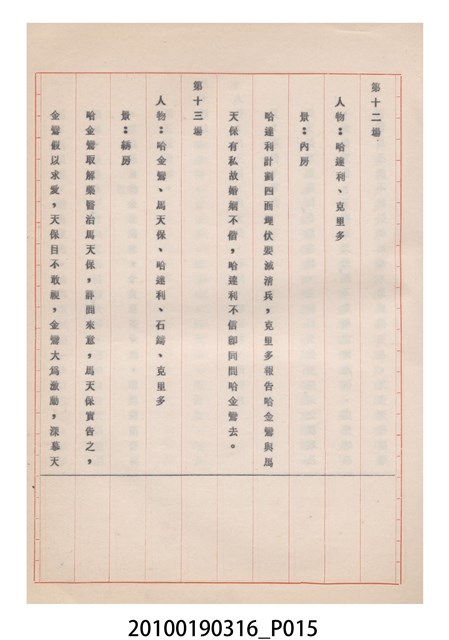 第十二場
人物：哈達利、克里多
景：內房
哈達利計劃四面埋伏要滅清兵，克里多報告哈金鴛與馬
天保有私故繪姻不偕，哈達利不信即同問哈金鴛去。
第十三場
人物：哈金鴛、馬天保、哈達利、石鑄、克里多
景：綉房
哈金鴛取解藥醫治馬天保，詳問來意，馬天保實告之，
金鴛復以求愛，天保目不敢視，金鴛大為激動，深慕天
20100190316_P015